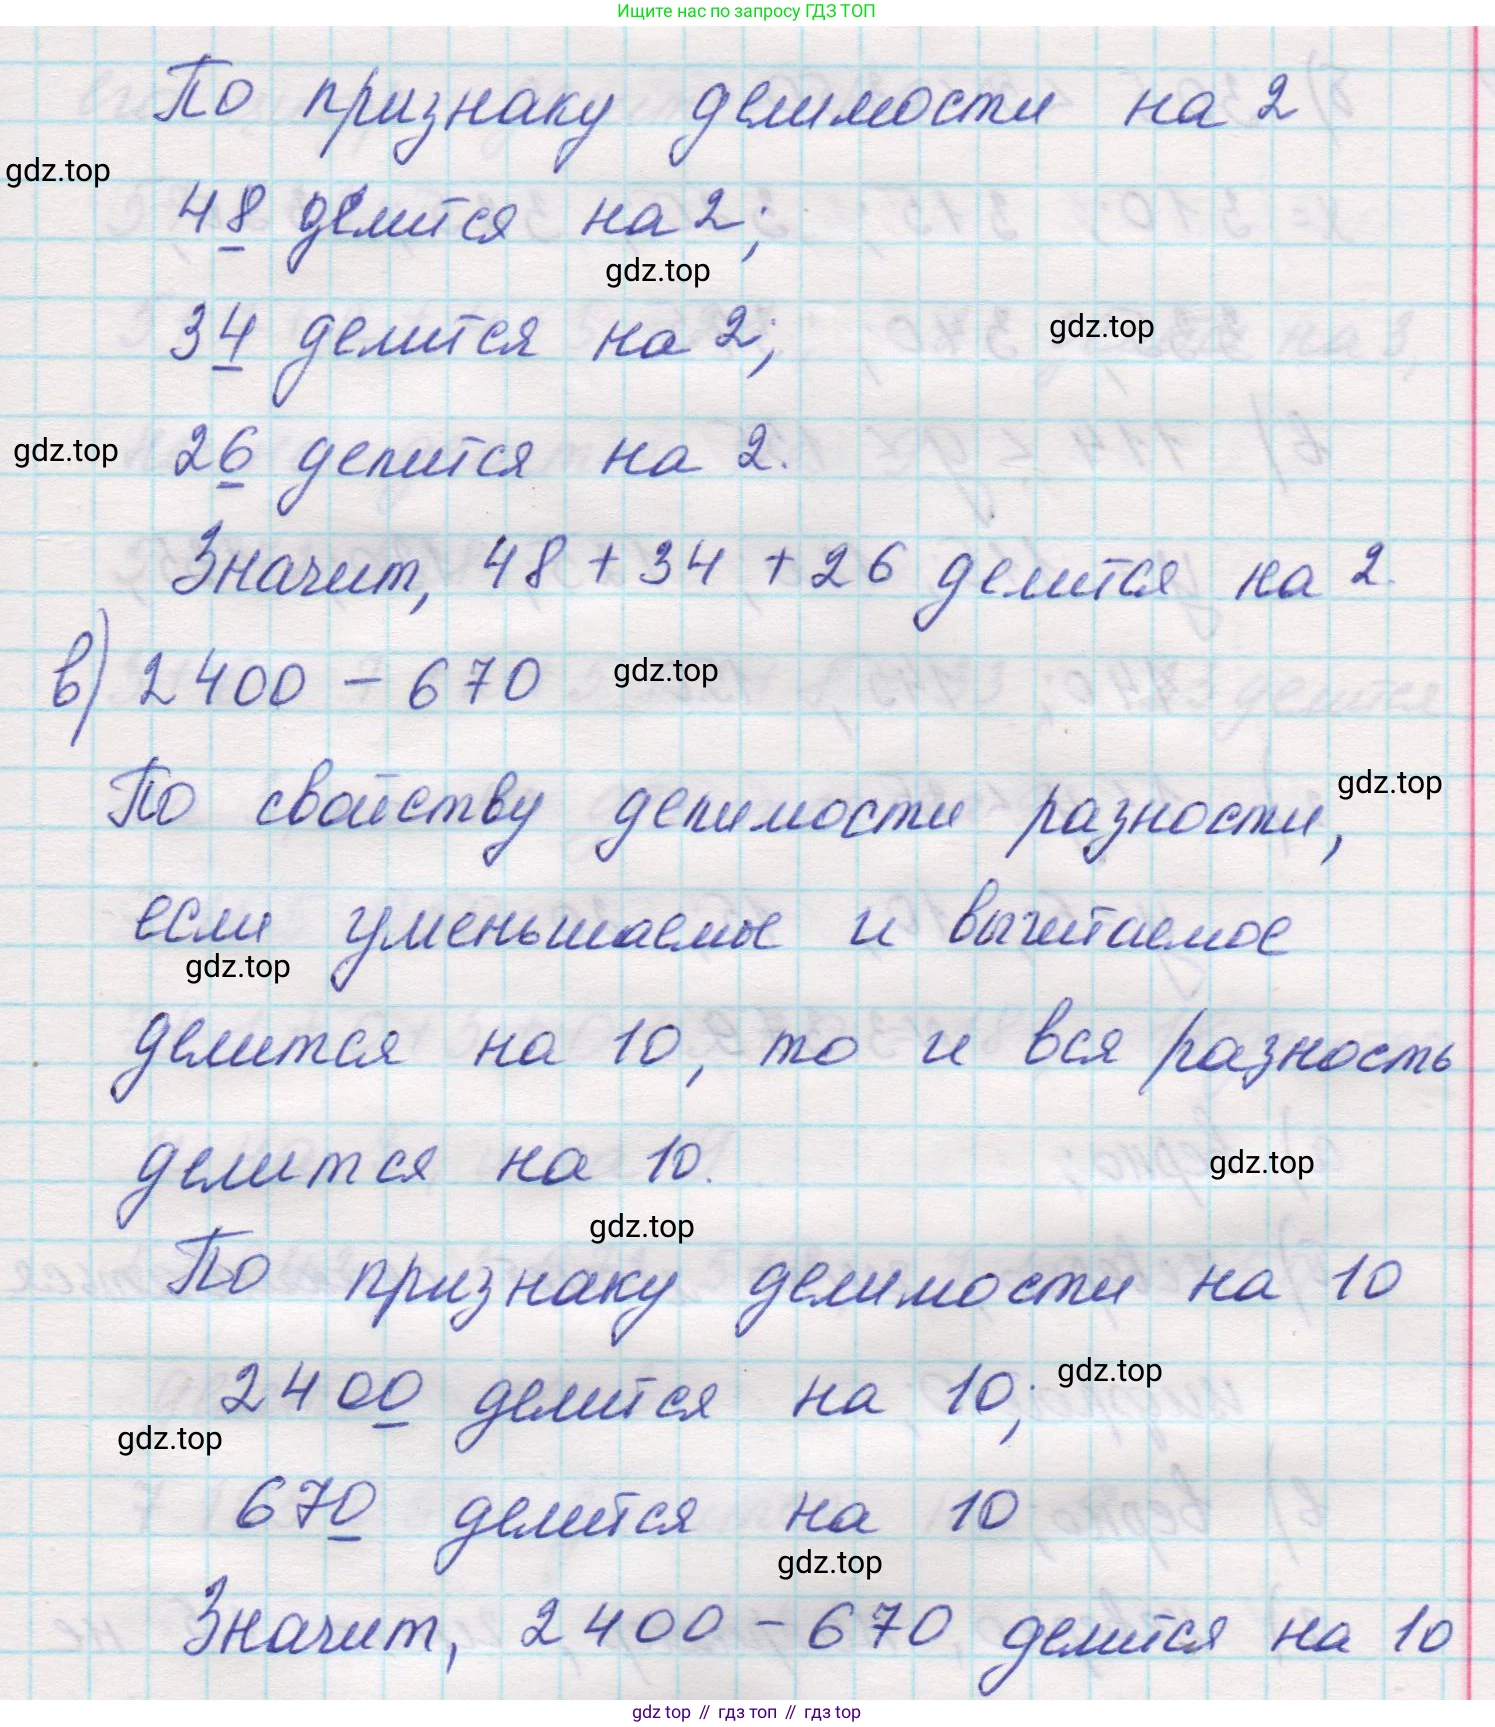 Ищите нас по запросу ГДЗ ТОП
По признаку делимости на 2
gdz.top
48 делится на 2;
gdz.top
34 делится на 2;
gdz.top
gdz.top
26 делится на 2.
Значит, 48 + 34 + 26 делится на 2.
в) 2400 - 670
gdz.top
По свойству делимости разности,
gdz.top
если уменьшаемое и вычитаемое
gdz.top
делится на 10, то и вся разность
делится на 10.
gdz.top
gdz.top
По признаку делимости на 10
2400 делится на 10;
gdz.top
gdz.top
670 делится на 10
gdz.top
Значит, 2400 - 670 делится на 10
gdz top // гдз топ // гдз top